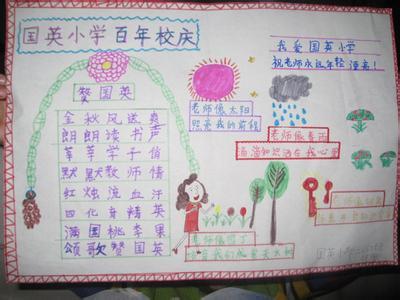 国英小学百年校庆
我爱国英小学
祝老师永远年轻漂亮!
赞国英
金秋风送爽
朗朗读书声
莘莘学子俏
默默教师情
红烛流血汗
四化育精英
满国桃李果
颂歌赞国英
老师像太阳
照亮我的前程
老师像春雨
滴滴知识洒在我心里
老师像
老师像园丁
国英小学